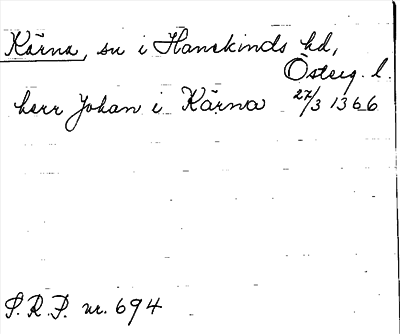 Kärna, sn i Hanekinds hd,
Österg. l.
herr Johan i Kärna 27/3 1366
S.R.P. nr. 694